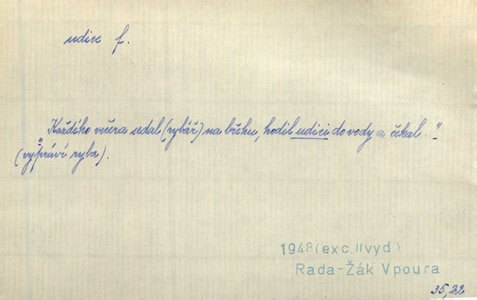 udice f.
Každého večera sedal (rybář) na břehu, hodil udici do vody a čekal."
(vypráví ryba).
1948 (exc. II vyd)
Rada-Žák Vpoura
35, 22